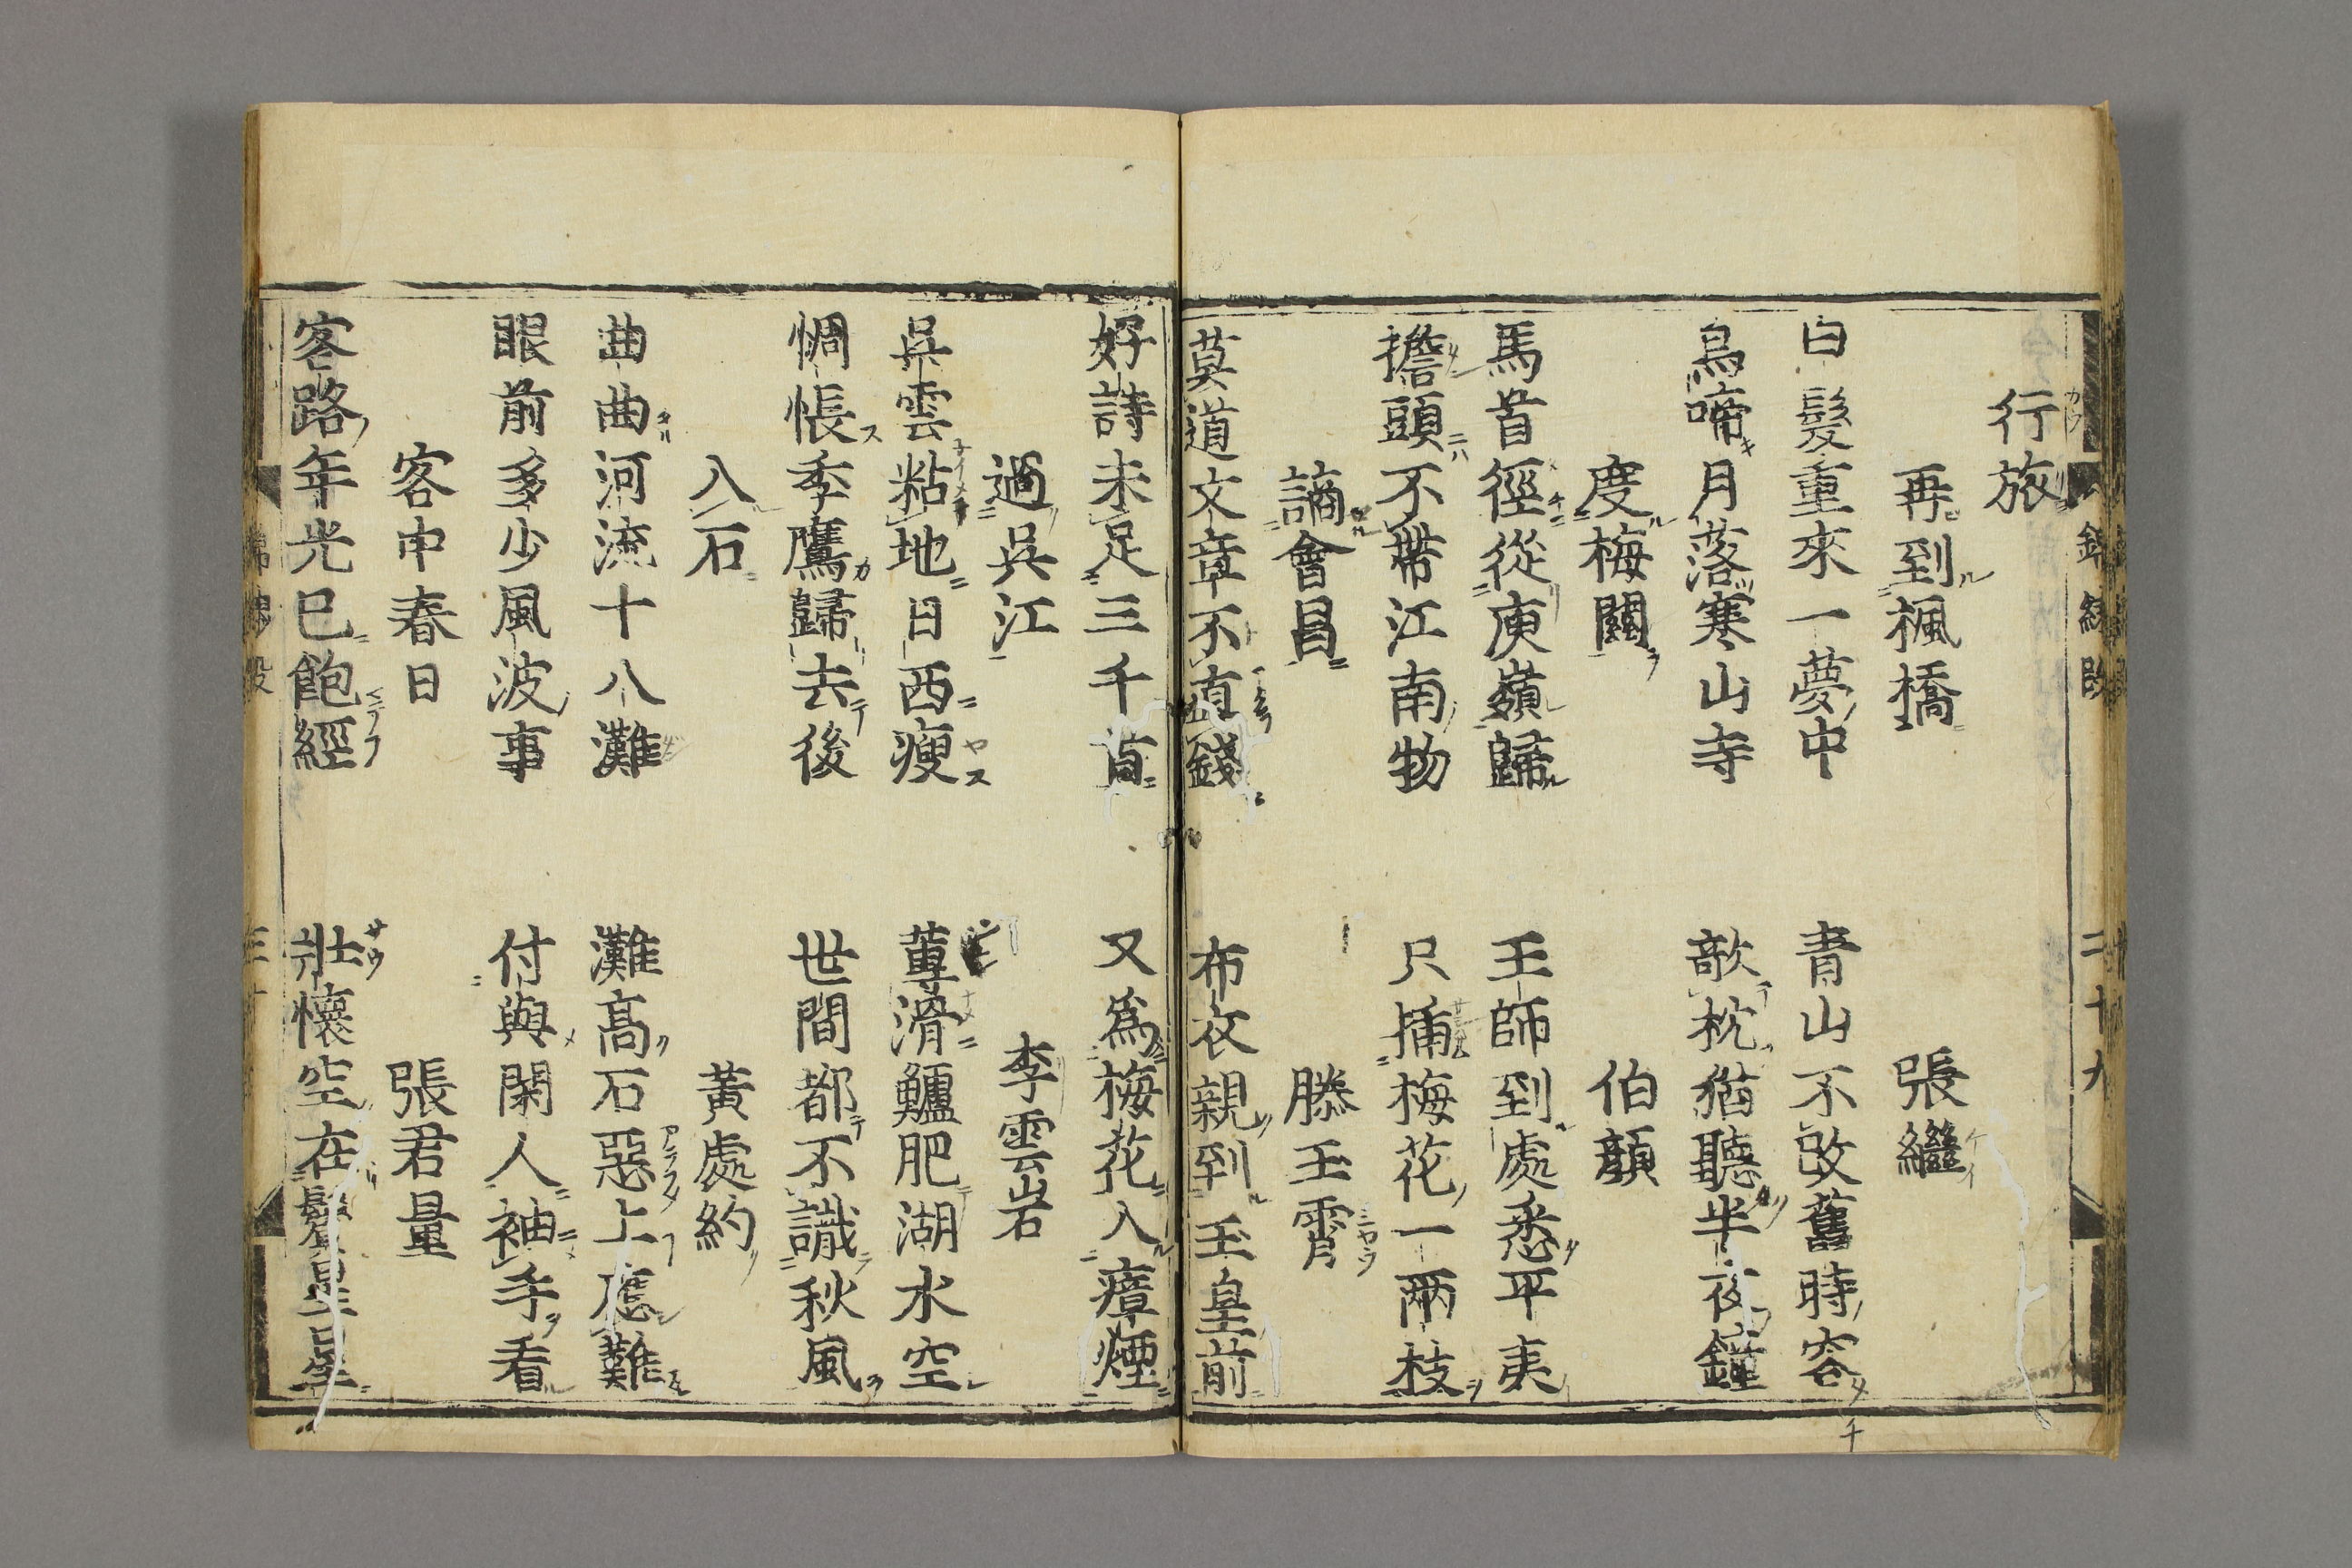 行旅
再到楓橋 張繼
白髮重來一夢中 青山不改舊時容
烏啼月落寒山寺 欹枕猶聽半夜鐘
度梅關 伯顏
馬首徑從庾嶺歸 王師到處悉平夷
擔頭不帶江南物 只插梅花一兩枝
謫會昌 滕王霄
莫道文章不直錢 布衣親到玉皇前
好詩未足三千首 又爲梅花入瘴煙
過吳江 李雲岩
吳雲粘地日西瘦 蓴滑鱸肥湖水空
惆悵季鷹歸去後 世間都不識秋風
入石 黃處約
曲曲河流十八灘 灘高石惡上應難
眼前多少風波事 付與閑人袖手看
客中春日 張君量
客路年光已飽經 壯懷空在鬢星星
錦繡段 二十九
錦繡段 三十